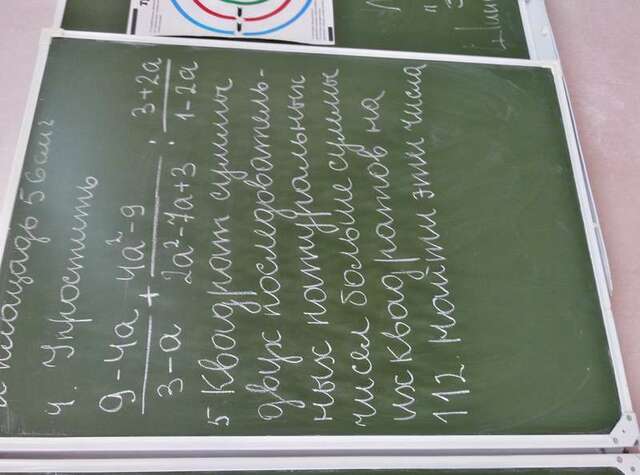 площадь 56 см²
4. Упростить
9-4a/3-a + 4a²-9/2a²-7a+3 : 3+2a/1-2a
5 Квадрат суммы
двух последователь-
ных натуральных
чисел больше суммы
их квадратов на
112. Найти эти числа